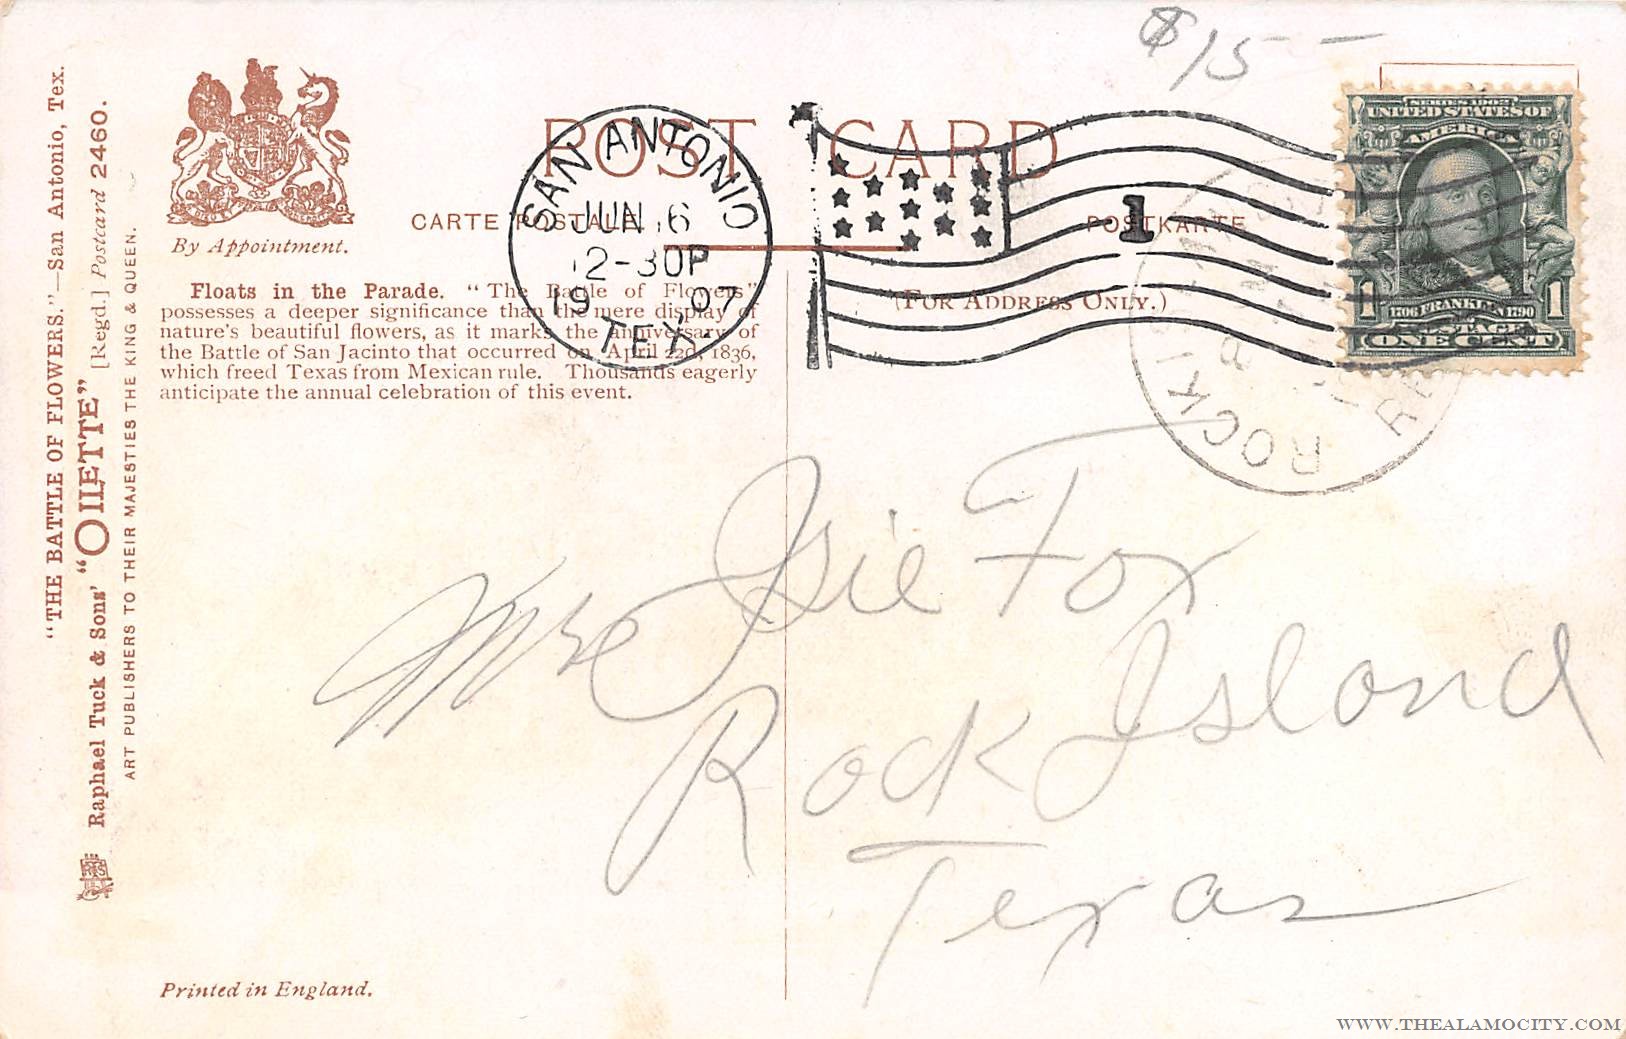 $15 —
"THE BATTLE OF FLOWERS."—San Antonio, Tex.
Raphael Tuck & Sons' "OILETTE" [Regd.] Postcard 2460.
ART PUBLISHERS TO THEIR MAJESTIES THE KING & QUEEN.
By Appointment.
POST CARD
CARTE POSTALE.
POSTKARTE
(FOR ADDRESS ONLY.)
Floats in the Parade. "The Battle of Flowers"
possesses a deeper significance than the mere display of
nature's beautiful flowers, as it marks the anniversary of
the Battle of San Jacinto that occurred on April 22d, 1836,
which freed Texas from Mexican rule. Thousands eagerly
anticipate the annual celebration of this event.
SAN ANTONIO
JUN 6
2-30P
1907
TEX.
1
ROCK IS
SERIES 1902
UNITED STATES OF
AMERICA
1706 FRANKLIN 1790
1 POSTAGE 1
ONE CENT
Osie Fox
Rock Island
Texas
Printed in England.
WWW.THEALAMOCITY.COM